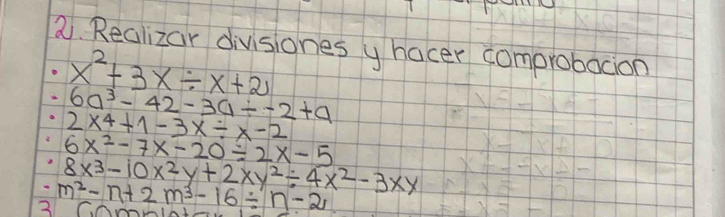 2. Realizar divisiones y hacer comprobacion
• x² + 3x ÷ x + 2
• 6a³ - 42 - 3a ÷ -2 + a
• 2x⁴ + 1 - 3x ÷ x - 2
• 6x² - 7x - 20 ÷ 2x - 5
• 8x³ - 10x²y + 2xy² ÷ 4x² - 3xy
• m² - n + 2m³ - 16 ÷ n - 2
3